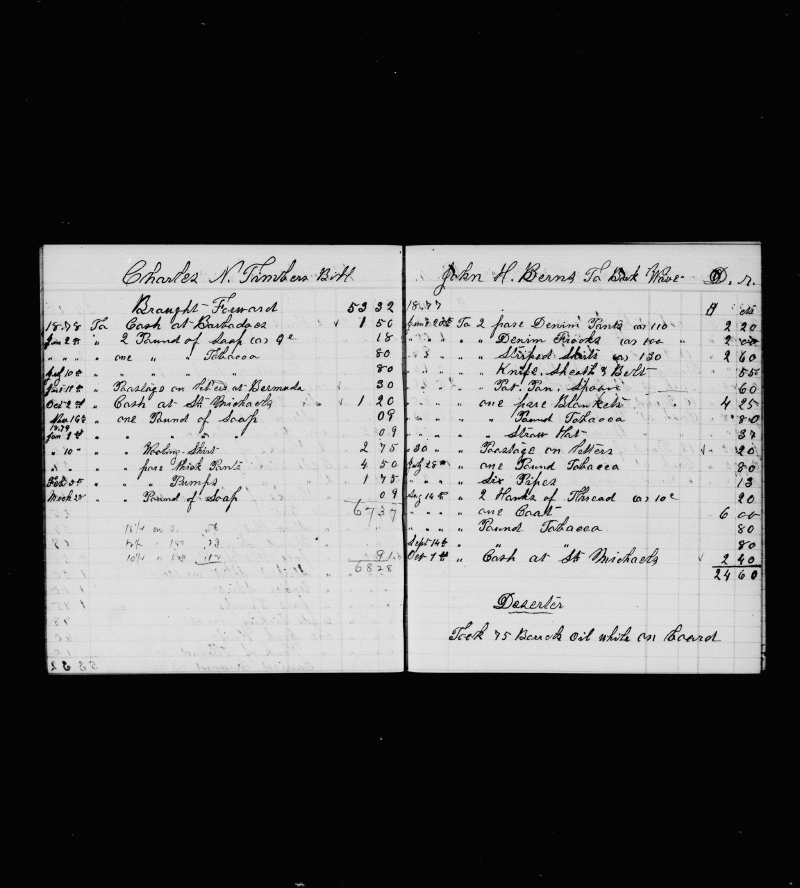 Charles N. Timbers Bill
Braught Forward 53 32
18.78 To Cash at Barbadoes √ 1 50
Jun 2th " 2 Pound of Soap as 9c 18
" " " " one " " Tobacoa 80
Aug 10th " " " " 80
" Paastage on letters at Bermuda 30
Oct 2th " Cash at St Michaels √ 1 20
Nov 16th " one Pound of Soap 09
18.79
Jan 1th " " " " 09
" 10" " " Wooling Shirt 2 75
" " " " pare thick Pants 4 50
Feb 5th " " " Pumps 1 75
" " Pound of Soap 09
67 37
91
68 28
John H. Berns To Bark Wave D. r.
18.77 $ cts
To 2 pare Denim Pants as 110 2 20
" " " " Denim Frocks as 100 " 2 00
" " " " Striped Shirts as 130 2 60
" " " " Knife. Sheath & Belt 55
" " " " Pot. Pan. Spoon 60
" " " one pare Blankets 4 25
" " " " " Pound Tobacoa " 80
" " " " " Straw Hat 37
" 30 " " Paastage on letters √ " 20
July 28th " one Pound Tobacoa 80
" " " " Six Pipes 13
Aug 14th " 2 Hanks of Thread as 10c 20
" " " " one Coat 6 00
" " " " Pound Tobacoa 80
Sept 14th " " " 80
Oct 1th " Cash at St Michaels √ 2 40
24 60
Deserter
Took 75 Barrels Oil while on board